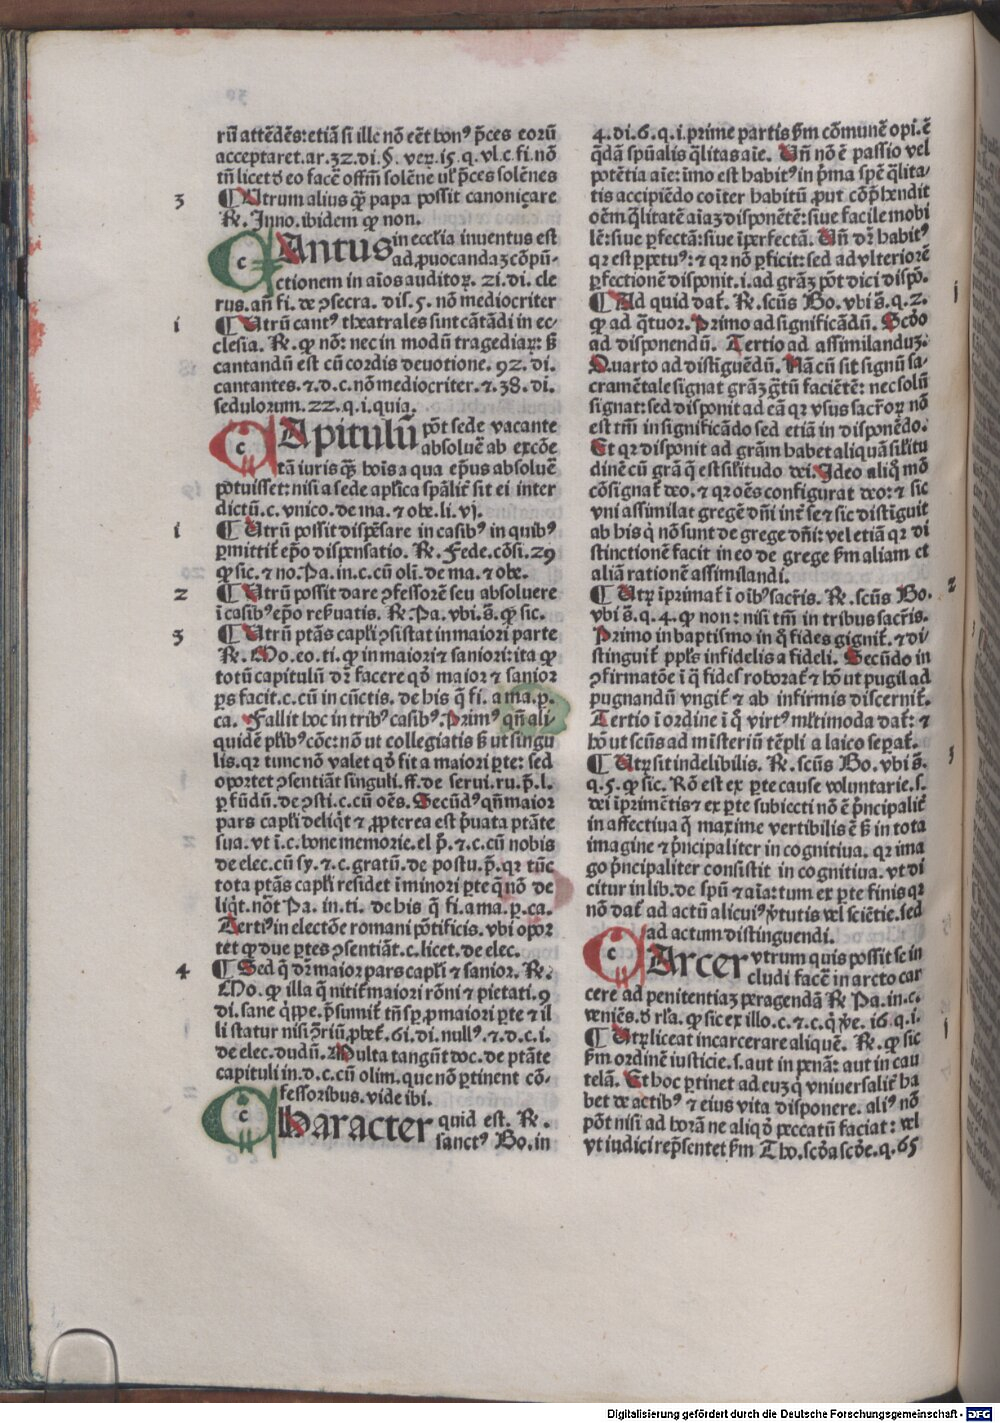 rū attēdēs: etiā si ille nō eēt bonꝰ p̄ces eorū
acceptaret. ar. 32. di. §. veꝝ. 15. q. vl. c. fi. nō
tn̄ licet ꝺ eo facē offm̄ solēne ul̓ p̄ces solēnes
3
¶ Utrum alius qꝫ papa possit canoniçare
℞. Inno. ibidem ꝙ non.
CAntus in ecclīa inuentus est
ad ꝓuocandaꝫ cōpū-
ctionem in aīos auditoꝝ. 21. di. cle
rus. an̄ fi. de ꝯsecra. dis. 5. nō mediocriter
i
¶ Utrū cantꝰ theatrales sint cātādi in ec-
clesia. ℞. ꝙ nō: nec in modū tragediaꝝ: sꝫ
cantandū est cū cordis deuotione. 92. di.
cantantes. ⁊. d. c. nō mediocriter. ⁊. 38. di.
sedulorum. 22. q. i. quia.
CApitulū pōt sede vacante
absoluē ab excōe
tā iuris qꝫ hoīs a qua ep̄us absoluē
potuisset: nisi a sede apl̓ica spālit̄ sit ei inter
dictū. c. vnico. de ma. ⁊ obe. li. vj.
i
¶ Utrū possit dispēsare in casibꝰ in quibꝰ
ꝑmittit̄ ep̄o dispensatio. ℞. Fede. cōsi. 29
ꝙ sic. ⁊ no. Pa. in. c. cū oli. de ma. ⁊ obe.
2
¶ Utrū possit dare ꝯfessorē seu absoluere
ī casibꝰ ep̄o reẜuatis. ℞. Pa. vbi. s̄. ꝙ sic.
3
¶ Utrū ptās capl̓i ꝯsistat in maiori parte
℞. Mo. eo. ti. ꝙ in maiori ⁊ saniori: ita ꝙ
totū capitulū dr̄ facere qꝺ maior ⁊ sanior
ps facit. c. cū in cūctis. de his q̄ fi. a ma. p.
ca. Fallit hoc in tribꝰ casibꝰ. Primꝰ qn̄ ali-
quid ē pl̓ibꝰ cōe: nō ut collegiatis sꝫ ut singu
lis. qꝛ tunc nō valet qꝺ fit a maiori ꝑte: sed
oportet ꝯsentiāt singuli. ff. de serui. ru. p̄. l.
ꝑ fūdū. de ꝯsti. c. cū oēs. Secūdꝰ qn̄ maior
pars capl̓i deliq̄t ⁊ ꝓpterea est p̄uata ptāte
sua. vt ī. c. bone memorie. el p̄. ⁊. c. cū nobis
de elec. cū sy. ⁊. c. gratū. de postu. p̄. qꝛ tūc
tota ptās capl̓i residet ī minori ꝑte q̄ nō de
liq̄t. nōt Pa. in. ti. de his q̄ fi. a ma. p. ca.
Tertiꝰ in electōe romani pōtificis. vbi opoꝛ
tet ꝙ due ꝑtes ꝯsentiāt. c. licet. de elec.
4
¶ Sed q̄ dr̄ maior pars capl̓i ⁊ sanior. ℞.
Mo. ꝙ illa q̄ nitit̄ maiori rōni ⁊ pietati. 9
di. sane q̇ppe. p̄sumit̄ tn̄ sꝑ ꝓ maiori ꝑte ⁊ il
li statur nisi ꝯriū ꝓbet̄. 61. di. nullꝰ. ⁊. d. c. i.
de elec. dudū. Multa tangūt doc. de ptāte
capituli in. d. c. cū olim. que nō ꝑtinent cō-
fessoribus. vide ibi.
CHaracter quid est. ℞.
sanctꝰ Bo. in
4. di. 6. q. i. prime partis ẜm cōmunē opi. ē
q̄dā spūalis q̄litas aīe. Un̄ nō ē passio vel
potētia aīe: īmo est habitꝰ in p̄ma spē q̄lita-
tis accipiēdo coīter habitū ꝓut cōp̄hendit
oēm q̄litatē aīaꝫ disponētē: siue facile mobi
lē: siue ꝑfectā: siue īperfectā. Un̄ dr̄ habitꝰ
qꝛ est ꝑpetuꝰ: ⁊ qꝛ nō ꝑficit: sed ad vlteriorē
ꝑfectionē disponit. i. ad grāꝫ pōt dici dispō.
i
¶ Ad quid dat̄. ℞. scūs Bo. vbi s̄. q. 2.
ꝙ ad q̄tuor. Primo ad significādū. Scꝺo
ad disponendū. Tertio ad assimilanduꝫ.
Quarto ad distīguēdū. Nā cū sit signū sa-
cramētale signat grāꝫ gͣtū faciētē: nec solū
signat: sed disponit ad eā qꝛ vsus sacroꝝ nō
est tm̄ in significādo sed etiā in disponēdo.
Et qꝛ disponit ad grām habet aliquā sil̓itu
dinē cū grā q̄ est sil̓itudo dei. Ideo aliq̊ mō
cōsignat̄ deo. ⁊ qꝛ oēs configurat deo: ⁊ sic
vni assimilat gregē dn̄i int̄ se ⁊ sic distīguit
ab his q̇ nō sunt de grege dn̄i: vel etiā qꝛ di
stinctionē facit in eo de grege ẜm aliam et
aliā rationē assimilandi.
2
¶ Utꝝ īprimat̄ ī oībꝰ sacr̄is. ℞. scūs Bo.
vbi s̄. q. 4. ꝙ non: nisi tm̄ in tribus sacr̄is.
Primo in baptismo in q̊ fides gignit̄. ⁊ di-
stinguit̄ ppl̓s infidelis a fideli. Secūdo in
ꝯfirmatōe ī q̊ fides roborat̄ ⁊ hō ut pugil ad
pugnandū vngit̄ ⁊ ab infirmis discernit̄.
Tertio ī ordine ī q̊ virtꝰ ml̓timoda dat̄: ⁊
hō ut scūs ad misteriū tēpli a laico separat̄.
3
¶ Utꝝ sit indelibilis. ℞. scūs Bo. vbi s̄.
q. 5. ꝙ sic. Rō est ex ꝑte cause voluntarie. s.
dei īprimētis ⁊ ex ꝑte subiecti nō ē p̄ncipalit̄
in affectiua q̄ maxime vertibilis ē sꝫ in tota
imagine ⁊ p̄ncipaliter in cognitiua. qꝛ ima
go p̄ncipaliter consistit in cognitiua. vt di
citur in lib. de spū ⁊ aīa: tum ex ꝑte finis qꝛ
nō dat̄ ad actū alicuiꝰ v̓tutis vel sciētie. sed
ad actum distinguendi.
CArcer vtrum quis possit se in
cludi facē in arcto car
cere ad penitentiaꝫ peragendā ℞ Pa. in. c.
veniēs. ꝺ rl̓a. ꝙ sic ex illo. c. ⁊. c. q̇ v̓e. 16. q. i.
i
¶ Utꝝ liceat incarcerare aliquē. ℞. ꝙ sic
ẜm ordinē iusticie. s. aut in penā: aut in cau
telā. Et hoc ꝑtinet ad euꝫ q̇ vniuersalit̄ ha
bet de actibꝰ ⁊ eius vita disponere. aliꝰ nō
pōt nisi ad horā ne aliqꝺ peccatū faciat: vel
vt iudici rep̄sentet ẜm Tho. scꝺa scꝺe. q. 65
Digitalisierung gefördert durch die Deutsche Forschungsgemeinschaft - DFG